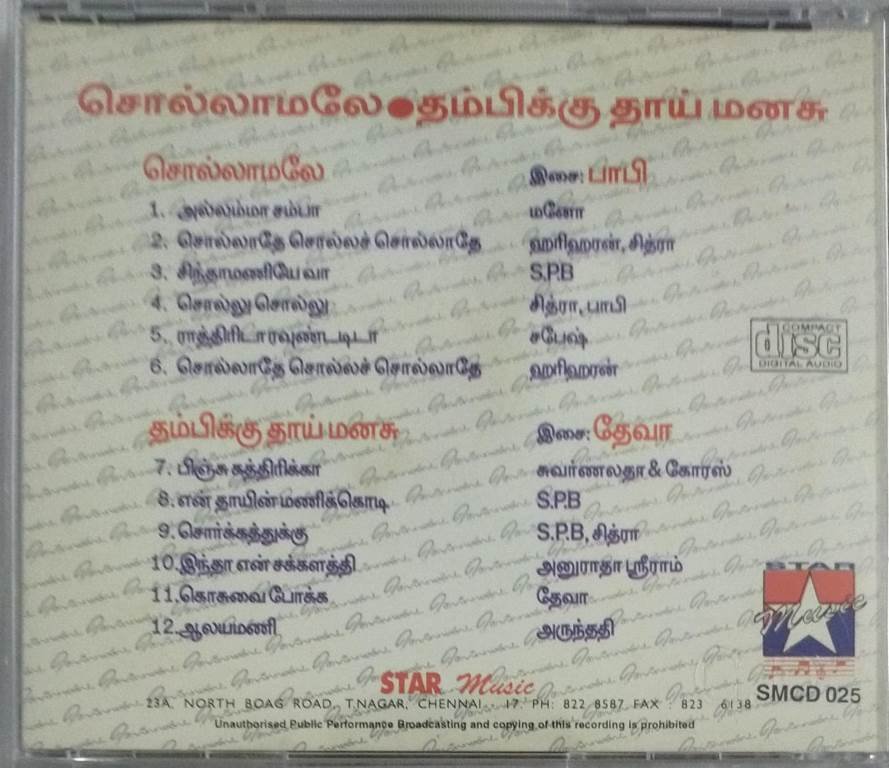 சொல்லாமலே●தம்பிக்கு தாய் மனசு
சொல்லாமலே இசை: பாபி
1. அல்லம்மா சம்பா மனோ
2. சொல்லாதே சொல்லச் சொல்லாதே ஹரிஹரன், சித்ரா
3. சிந்தாமணியே வா S.P.B
4. சொல்லு சொல்லு சித்ரா, பாபி
5. ராத்திரிடா ரவுண்டடிடா சபேஷ்
6. சொல்லாதே சொல்லச் சொல்லாதே ஹரிஹரன்
தம்பிக்கு தாய் மனசு இசை: தேவா
7. பிஞ்சு கத்திரிக்கா சுவர்ணலதா & கோரஸ்
8. என் தாயின் மணிக்கொடி S.P.B
9. சொர்க்கத்துக்கு S.P.B, சித்ரா
10. இந்தா என் சக்களத்தி அனுராதா ஸ்ரீராம்
11. கொசுவை போக்க தேவா
12. ஆலயமணி அருந்ததி
COMPACT
disc
DIGITAL AUDIO
STAR
Music
SMCD 025
STAR Music
23A, NORTH BOAG ROAD, T.NAGAR, CHENNAI - 17. PH: 822 8587 FAX : 823 6138
Unauthorised Public Performance Broadcasting and copying of this recording is prohibited